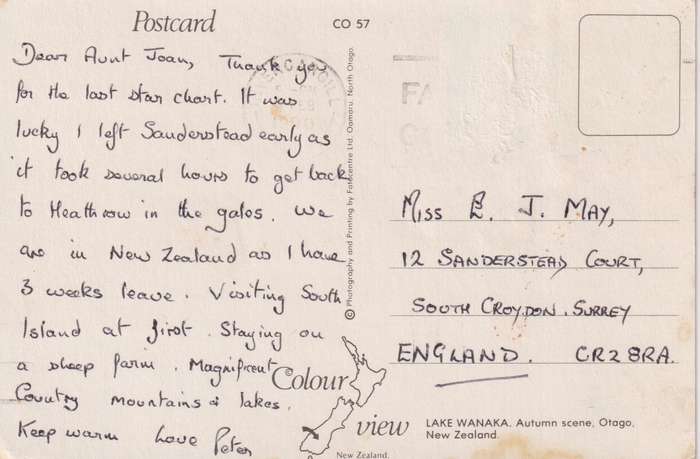 Postcard
CO 57
Dear Aunt Joan, Thank you
for the last star chart. It was
lucky I left Sanderstead early as
it took several hours to get back
to Heathrow in the gales. We
are in New Zealand as I have
3 weeks leave. Visiting South
Island at first. Staying on
a sheep farm. Magnificent
Country mountains & lakes.
Keep warm Love Peter
INVERCARGILL
FA
© Photography and Printing by Fotocentre Ltd. Oamaru. North Otago.
MISS E. J. MAY,
12 SANDERSTEAD COURT,
SOUTH CROYDON. SURREY
ENGLAND. CR2 8RA.
Colour
view
New Zealand.
LAKE WANAKA. Autumn scene, Otago,
New Zealand.